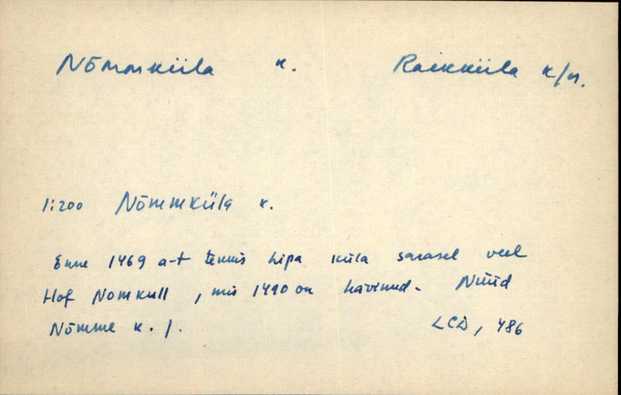 Nõmmküla k. Raikküla k/n.
1:200 Nõmmküla k.
Enne 1469 a-t tennis Lipa küla sarasel veel
Hof Nomkull, mis 1490 on hävinud. Nüüd
Nõmme k. j.
LCD, 486